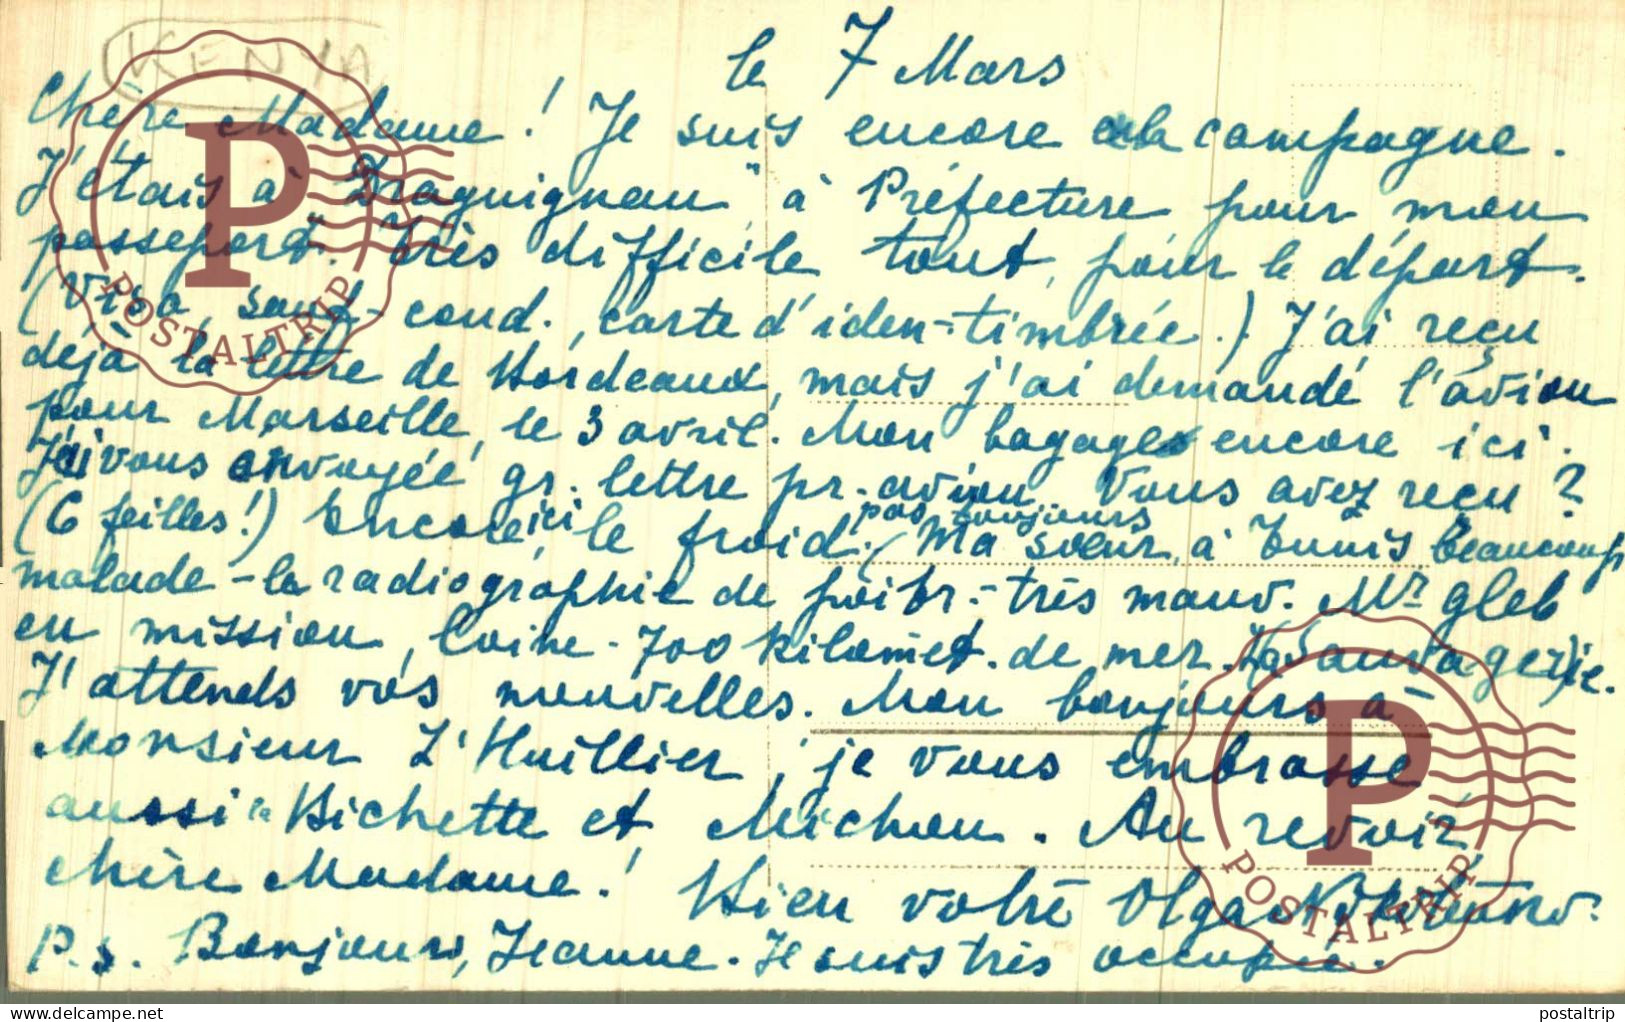 KENYA
le 7 Mars
Chère Madame! Je suis encore à la campagne.
J'étais à "Draguignan" à Préfecture pour mon
passeport. Très difficile tout, pour le départ.
(Visa, sauf-cond., carte d'iden-timbrée.) J'ai reçu
déjà la lettre de Bordeaux, mais j'ai demandé l'avion
pour Marseille, le 3 avril. Mon bagages encore ici.
J'ai vous envoyée gr. lettre pr. avion. Vous avez reçu?
(6 feilles!) Encore ici, le froid. (pas toujours) Ma sœur, à Tunis beaucoup
malade - la radiographie de poitr. - très mauv. Mr Gleb
en mission, loine - 700 kilomèt. de mer. (La Sauvagerie.)
J'attends vos nouvelles. Mon bonjours à
Monsieur L'Huillier, je vous embrasse
aussi Bichette et Michou. Au revoir,
chère Madame! Bien votre Olga
P.S. Bonjours, Jeanne. Je suis très occupée.
P
POSTALTRIP
P
POSTALTRIP
postaltrip